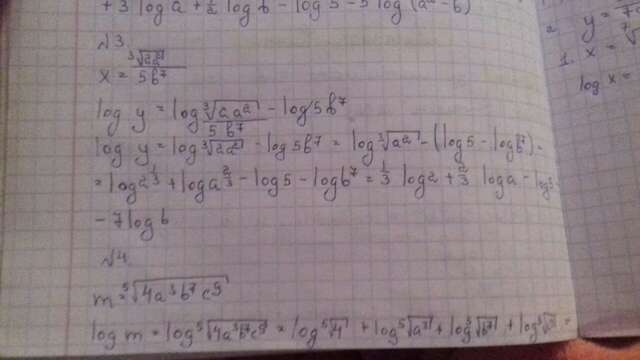 +3 log a + 1/2 log b - log 5 - 5 log (a - b)
№3
x = ∛(2a²) / 5b⁷
log y = log ∛(2a²) / 5b⁷ - log 5b⁷
log y = log ∛(2a²) - log 5b⁷ = log ∛(a²) - (log 5 - log b⁷) =
= log 2^(1/3) + log a^(2/3) - log 5 - log b⁷ = 1/3 log 2 + 2/3 log a - log 5
- 7 log b
№4
m = ⁵√(4a³b⁷c⁹)
log m = log ⁵√(4a³b⁷c⁹) = log ⁵√4 + log ⁵√a³ + log ⁵√b⁷ + log =
2. y =
1. x =
log x =